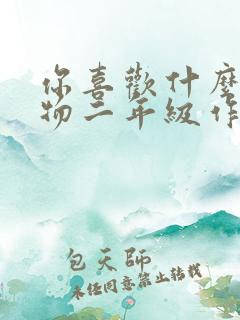 你喜歡什麼
物二年級作
包天師
未經同意禁止轉載